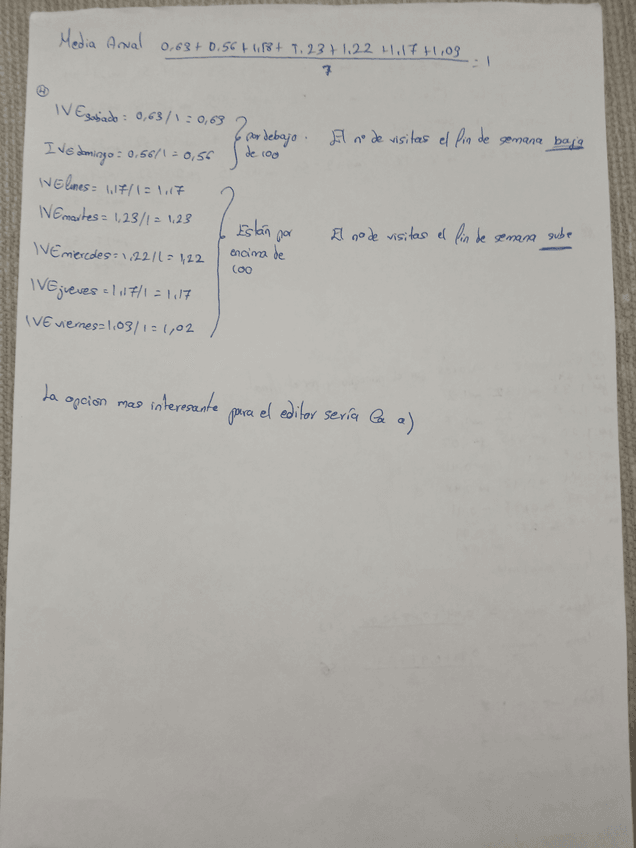 Media Anual 0,63 + 0.56 + 1,18 + 1.23 + 1.22 + 1,17 + 1,03 = 1
7
4
IVE sabado = 0,63/1 = 0,63
IVE domingo = 0,56/1 = 0,56
por debajo de 100
El nº de visitas el fin de semana baja
IVE lunes = 1,17/1 = 1,17
IVE martes = 1,23/1 = 1,23
IVE miercoles = 1,22/1 = 1,22
IVE jueves = 1,17/1 = 1,17
IVE viernes = 1,03/1 = 1,02
Están por
encima de
100
El nº de visitas el fin de semana sube
La opción mas interesante para el editor sería la a)